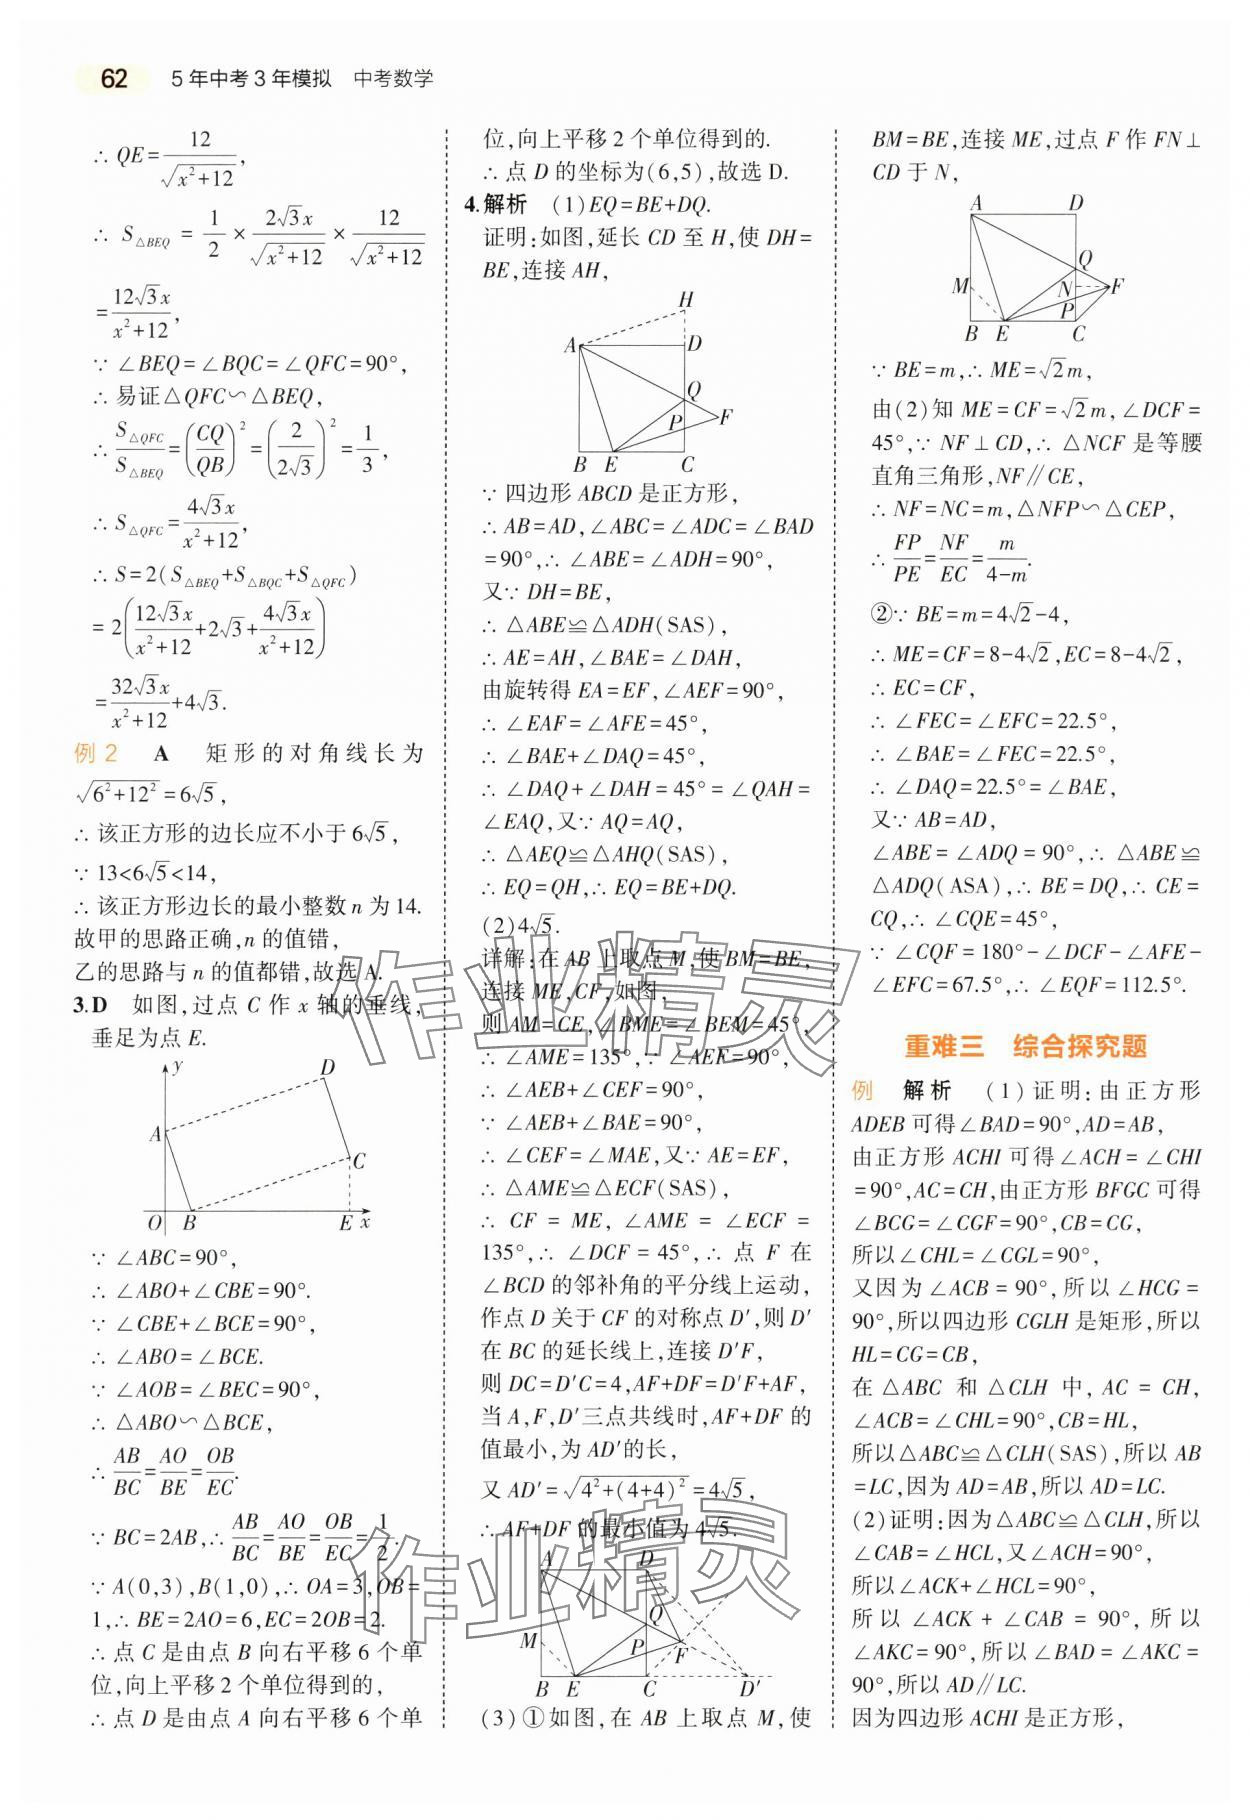 62 5年中考3年模拟 中考数学
∴ QE=12/√(x²+12),
∴ S△BEQ=1/2×2√3x/√(x²+12)×12/√(x²+12)
=12√3x/(x²+12),
∵ ∠BEQ=∠BQC=∠QFC=90°,
∴ 易证△QFC∽△BEQ,
∴ S△QFC/S△BEQ=(CQ/QB)²=(2/2√3)²=1/3,
∴ S△QFC=4√3x/(x²+12),
∴ S=2(S△BEQ+S△BQC+S△QFC)
=2(12√3x/(x²+12)+2√3+4√3x/(x²+12))
=32√3x/(x²+12)+4√3.
例2 A 矩形的对角线长为
√(6²+12²)=6√5,
∴ 该正方形的边长应不小于6√5,
∵ 13<6√5<14,
∴ 该正方形边长的最小整数n为14.
故甲的思路正确,n的值错,
乙的思路与n的值都错,故选A.
3.D 如图,过点C作x轴的垂线,
垂足为点E.
y
D
A
C
O B E x
∵ ∠ABC=90°,
∴ ∠ABO+∠CBE=90°.
∵ ∠CBE+∠BCE=90°,
∴ ∠ABO=∠BCE.
∵ ∠AOB=∠BEC=90°,
∴ △ABO∽△BCE,
∴ AB/BC=AO/BE=OB/EC.
∵ BC=2AB,∴ AB/BC=AO/BE=OB/EC=1/2.
∵ A(0,3),B(1,0),∴ OA=3,OB=
1,∴ BE=2AO=6,EC=2OB=2.
∴ 点C是由点B向右平移6个单
位,向上平移2个单位得到的,
∴ 点D是由点A向右平移6个单
位,向上平移2个单位得到的.
∴ 点D的坐标为(6,5),故选D.
4.解析 (1)EQ=BE+DQ.
证明:如图,延长CD至H,使DH=
BE,连接AH,
H
A D
Q
P F
B E C
∵ 四边形ABCD是正方形,
∴ AB=AD,∠ABC=∠ADC=∠BAD
=90°,∴ ∠ABE=∠ADH=90°,
又∵ DH=BE,
∴ △ABE≌△ADH(SAS),
∴ AE=AH,∠BAE=∠DAH,
由旋转得EA=EF,∠AEF=90°,
∴ ∠EAF=∠AFE=45°,
∴ ∠BAE+∠DAQ=45°,
∴ ∠DAQ+∠DAH=45°=∠QAH=
∠EAQ,又∵ AQ=AQ,
∴ △AEQ≌△AHQ(SAS),
∴ EQ=QH,∴ EQ=BE+DQ.
(2)4√5.
详解:在AB上取点M,使BM=BE,
连接ME,CF,如图,
则AM=CE,∠BME=∠BEM=45°,
∴ ∠AME=135°,∵ ∠AEF=90°,
∴ ∠AEB+∠CEF=90°,
∵ ∠AEB+∠BAE=90°,
∴ ∠CEF=∠MAE,又∵ AE=EF,
∴ △AME≌△ECF(SAS),
∴ CF=ME,∠AME=∠ECF=
135°,∴ ∠DCF=45°,∴ 点F在
∠BCD的邻补角的平分线上运动,
作点D关于CF的对称点D′,则D′
在BC的延长线上,连接D′F,
则DC=D′C=4,AF+DF=D′F+AF,
当A,F,D′三点共线时,AF+DF的
值最小,为AD′的长,
又AD′=√(4²+(4+4)²)=4√5,
∴ AF+DF的最小值为4√5.
A D
Q
M P F
B E C D′
(3)①如图,在AB上取点M,使
BM=BE,连接ME,过点F作FN⊥
CD于N,
A D
Q
M N F
P
B E C
∵ BE=m,∴ ME=√2m,
由(2)知ME=CF=√2m,∠DCF=
45°,∵ NF⊥CD,∴ △NCF是等腰
直角三角形,NF∥CE,
∴ NF=NC=m,△NFP∽△CEP,
∴ FP/PE=NF/EC=m/(4-m).
②∵ BE=m=4√2-4,
∴ ME=CF=8-4√2,EC=8-4√2,
∴ EC=CF,
∴ ∠FEC=∠EFC=22.5°,
∴ ∠BAE=∠FEC=22.5°,
∴ ∠DAQ=22.5°=∠BAE,
又∵ AB=AD,
∠ABE=∠ADQ=90°,∴ △ABE≌
△ADQ(ASA),∴ BE=DQ,∴ CE=
CQ,∴ ∠CQE=45°,
∵ ∠CQF=180°-∠DCF-∠AFE-
∠EFC=67.5°,∴ ∠EQF=112.5°.
重难三 综合探究题
例 解析 (1)证明:由正方形
ADEB可得∠BAD=90°,AD=AB,
由正方形ACHI可得∠ACH=∠CHI
=90°,AC=CH,由正方形BFGC可得
∠BCG=∠CGF=90°,CB=CG,
所以∠CHL=∠CGL=90°,
又因为∠ACB=90°,所以∠HCG=
90°,所以四边形CGLH是矩形,所以
HL=CG=CB,
在△ABC和△CLH中,AC=CH,
∠ACB=∠CHL=90°,CB=HL,
所以△ABC≌△CLH(SAS),所以AB
=LC,因为AD=AB,所以AD=LC.
(2)证明:因为△ABC≌△CLH,所以
∠CAB=∠HCL,又∠ACH=90°,
所以∠ACK+∠HCL=90°,
所以∠ACK+∠CAB=90°,所以
∠AKC=90°,所以∠BAD=∠AKC=
90°,所以AD∥LC.
因为四边形ACHI是正方形,
作业精灵
作业精灵